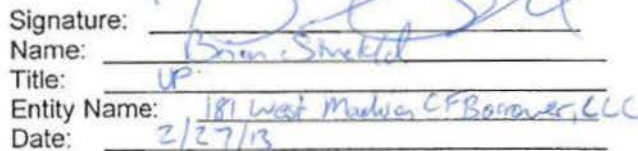 Signature:
Name: Brian
Title: VP
Entity Name: 181 West Madison CF Borrower, LLC
Date: 2/27/13